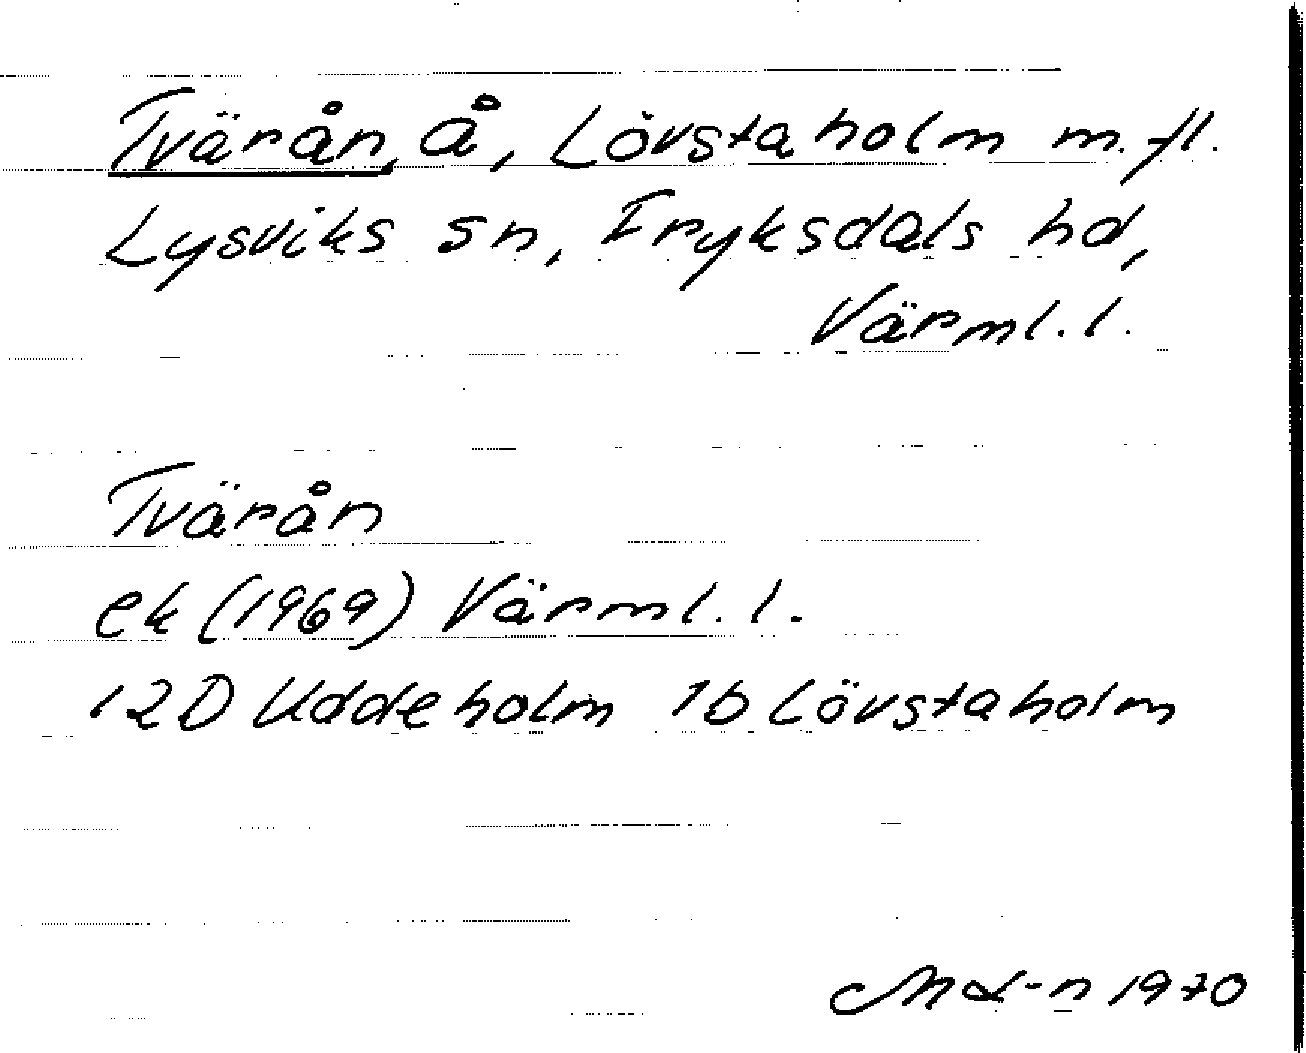 Tvärån, å, Lövstaholm m.fl.
Lysviks sn, Fryksdals hd,
Värml. l.
Tvärån
ek (1969) Värml. l.
12D Uddeholm 1b Lövstaholm
1970